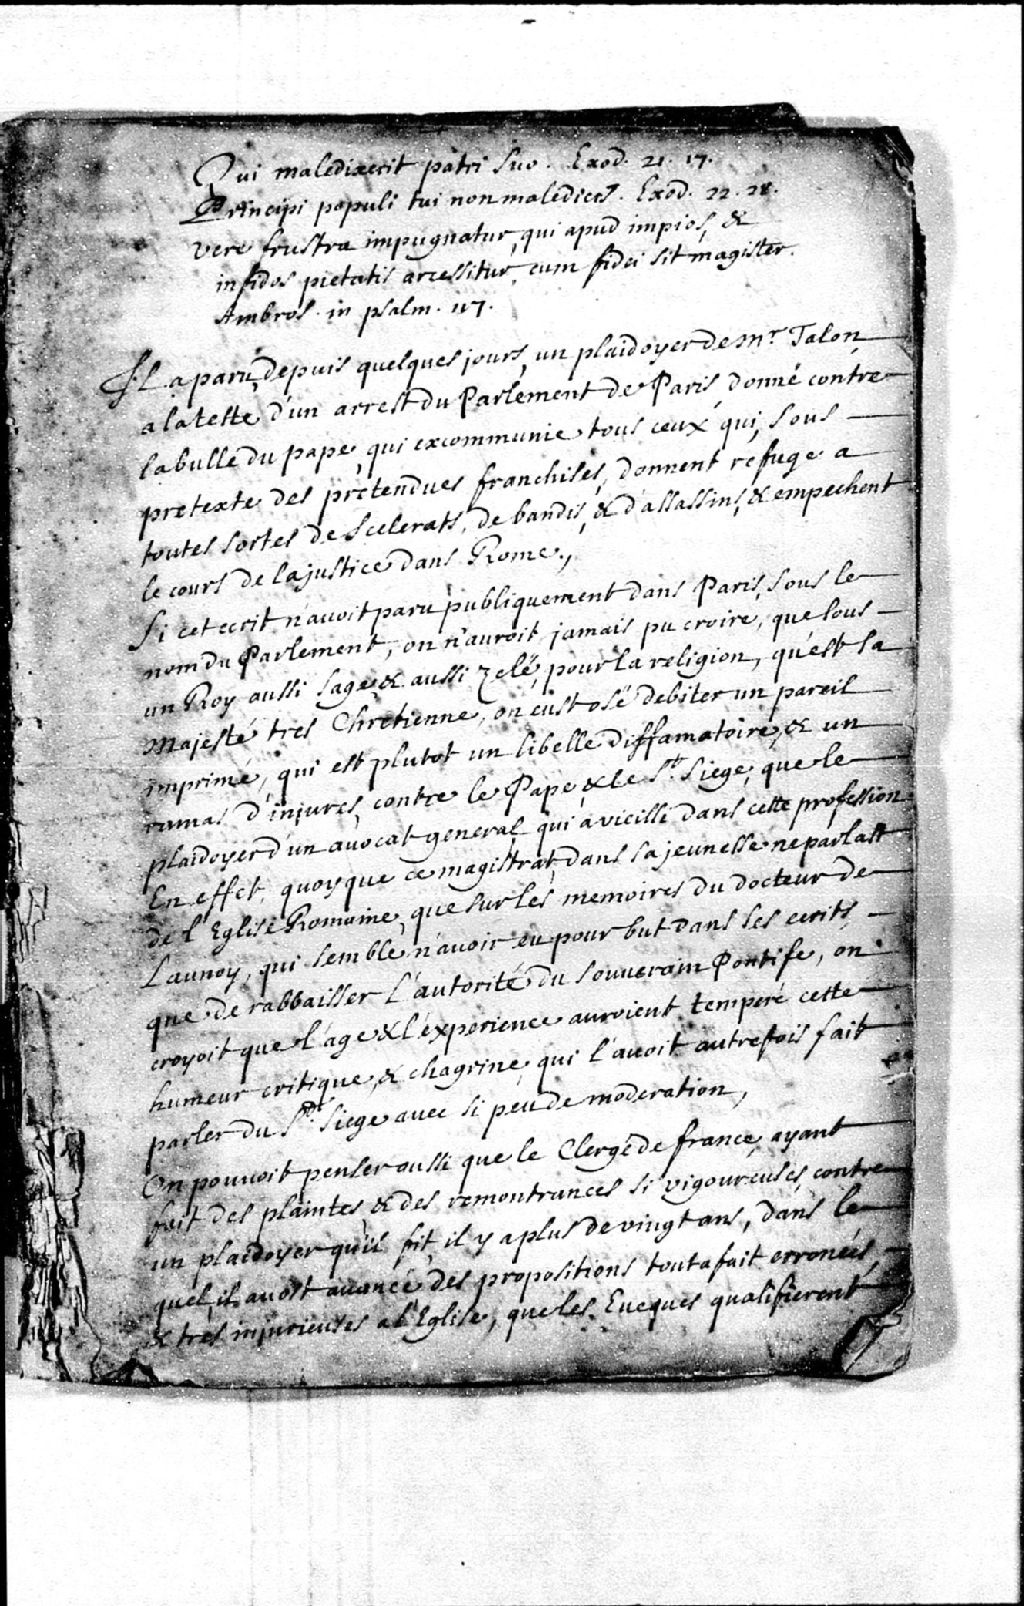 Qui maledixerit patri suo. Exod. 21. 17.
Principi populi tui non maledices. Exod. 22. 28.
vere frustra impugnatur, qui apud impios, &
infidos pietatis arcessitur, cum fidei sit magister.
Ambros. in psalm. 117.
Il a paru, depuis quelques jours, un plaidoyer de Mr Talon,
a la teste d'un arrest du Parlement de Paris, donné contre
la bulle du pape, qui excommunie tous ceux qui, sous
pretexte des prétendues franchises, donnent refuge a
toutes sortes de scelerats, de bandis, & d'assassins, & empechent
le cours de la justice dans Rome,
si cet ecrit n'avoit paru publiquement dans Paris, sous le
nom du Parlement, on n'auroit jamais pu croire, que sous
un Roy aussi sage & aussi zelé, pour la religion, qu'est sa
Majesté tres Chretienne, on eust osé debiter un pareil
imprimé, qui est plutot un libelle diffamatoire, & un
ramas d'injures, contre le Pape & le St Siege, que le
plaidoyer d'un avocat general, qui a vieilli dans cette profession
En effet, quoyque ce magistrat, dans sa jeunesse ne parlast
de l'Eglise Romaine, que sur les memoires du docteur de
Launoy, qui semble n'avoir eu pour but dans ses ecrits,
que de rabbaisser l'autorité du souverain Pontife, on
croyoit que l'age & l'experience auroient temperé cette
humeur critique, & chagrine, qui l'avoit autrefois fait
parler du St Siege avec si peu de moderation,
On pouvoit penser aussi que le Clergé de france, ayant
fait des plaintes, & des remontrances si vigoureuses, contre
un plaidoyer qu'il fit, il y a plus de vingt ans, dans le
quel il avoit avancé des propositions tout a fait erronées,
& tres injurieuses a l'Eglise, que les Eveques qualifierent